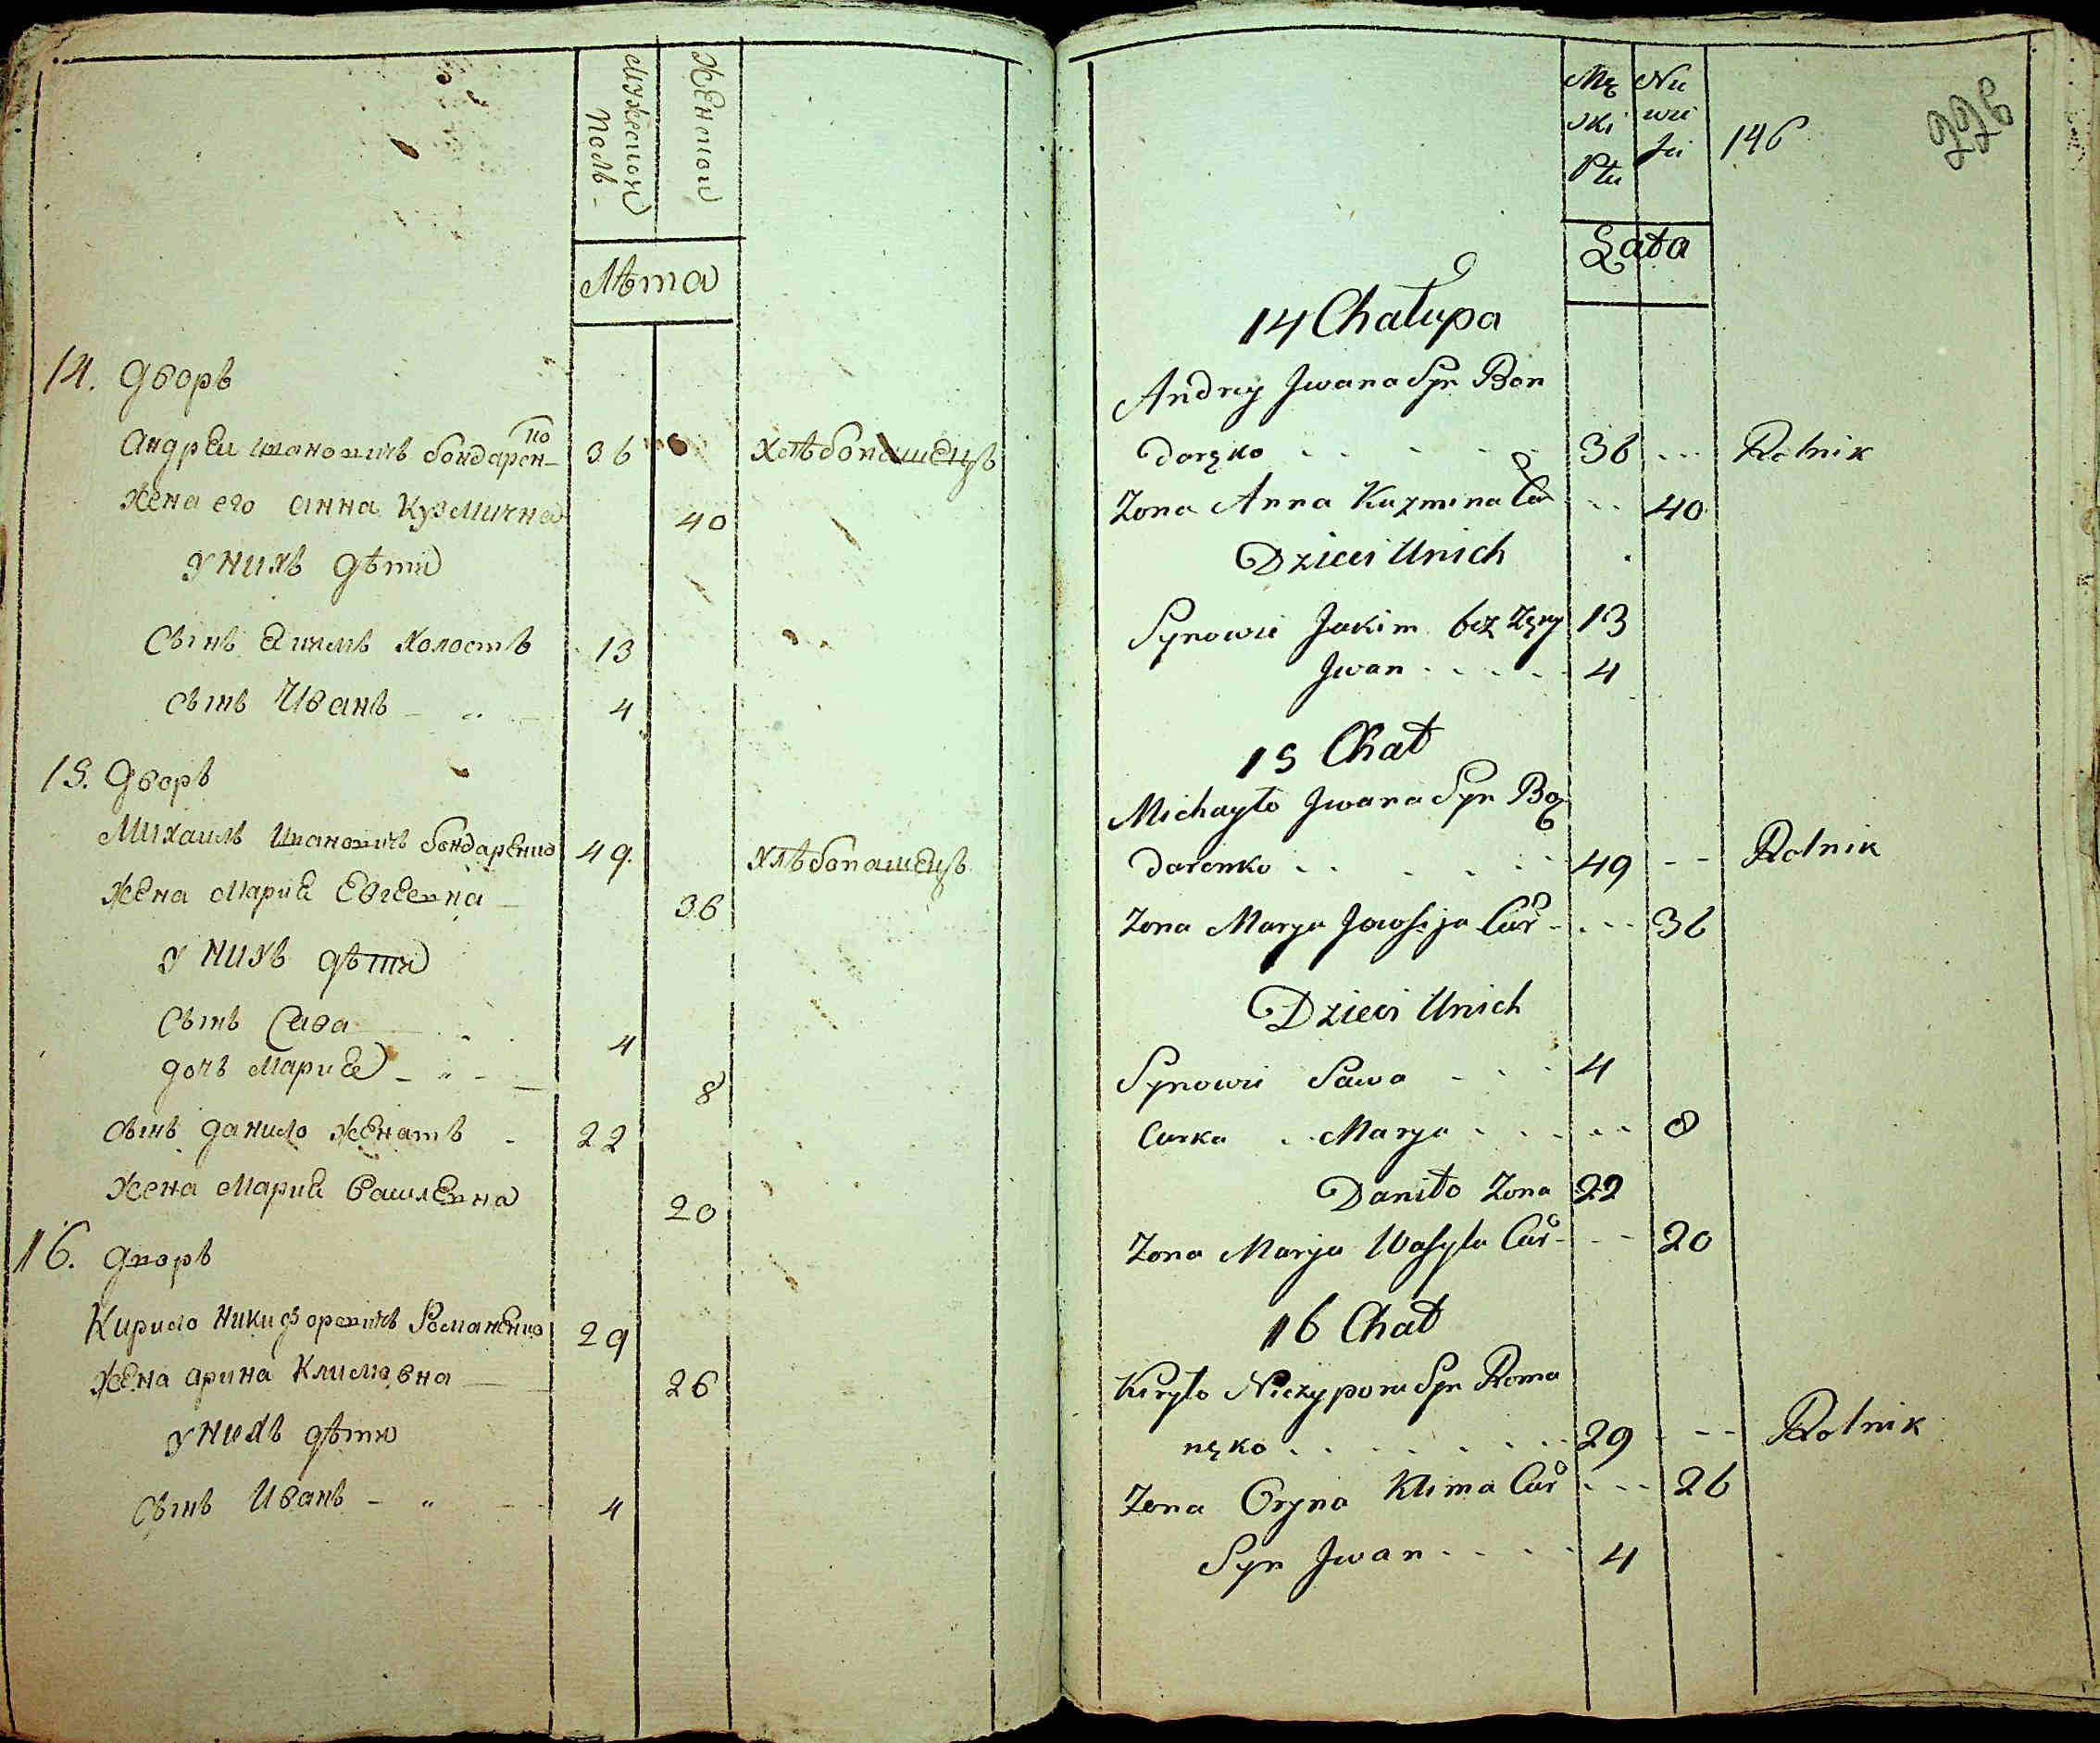 Мужескои
Полъ
Женскои
Лѣта
14. Дворъ
Андрѣи Ивановичъ Бондаренко
36
Хлѣбопашецъ
Жена его Анна Кузмична
40
У нихъ дѣти
Сынъ Екимъ холостъ
13
Сынъ Иванъ
4
15. Дворъ
Михаилъ Ивановичъ Бондаренко
49
Хлѣбопашецъ
Жена Мариѣ Евсеевна
36
У нихъ дѣти
Сынъ Сава
4
дочь Мариѣ
8
Сынъ Данило женатъ
22
Жена Мариѣ Васильевна
20
16. Дворъ
Кирило Никифоровичъ Романенко
29
Жена Арина Климовна
26
У нихъ дѣти
Сынъ Иванъ
4
Mę Nie
ski wie
Płci
146
226
Lata
14 Chałupa
Andrey Jwana Syn Bon
daręko 36 Rolnik
Zona Anna Kuzmina Cór 40
Dzieci Unich
Synowie Jakim bez Zęny 13
Jwan 4
15 Chał
Michayło Jwana Syn Bą
darenko 49 Rolnik
Zona Marya Jowsija Cór 36
Dzieci Unich
Synowie Sawa 4
Curka Marya 8
Daniło Zona 22
Zona Marya Wasyla Cór 20
16 Chał
Kiryło Niczypora Syn Roma
nęko 29 Rolnik
Zona Oryna Klima Cór 26
Syn Jwan 4